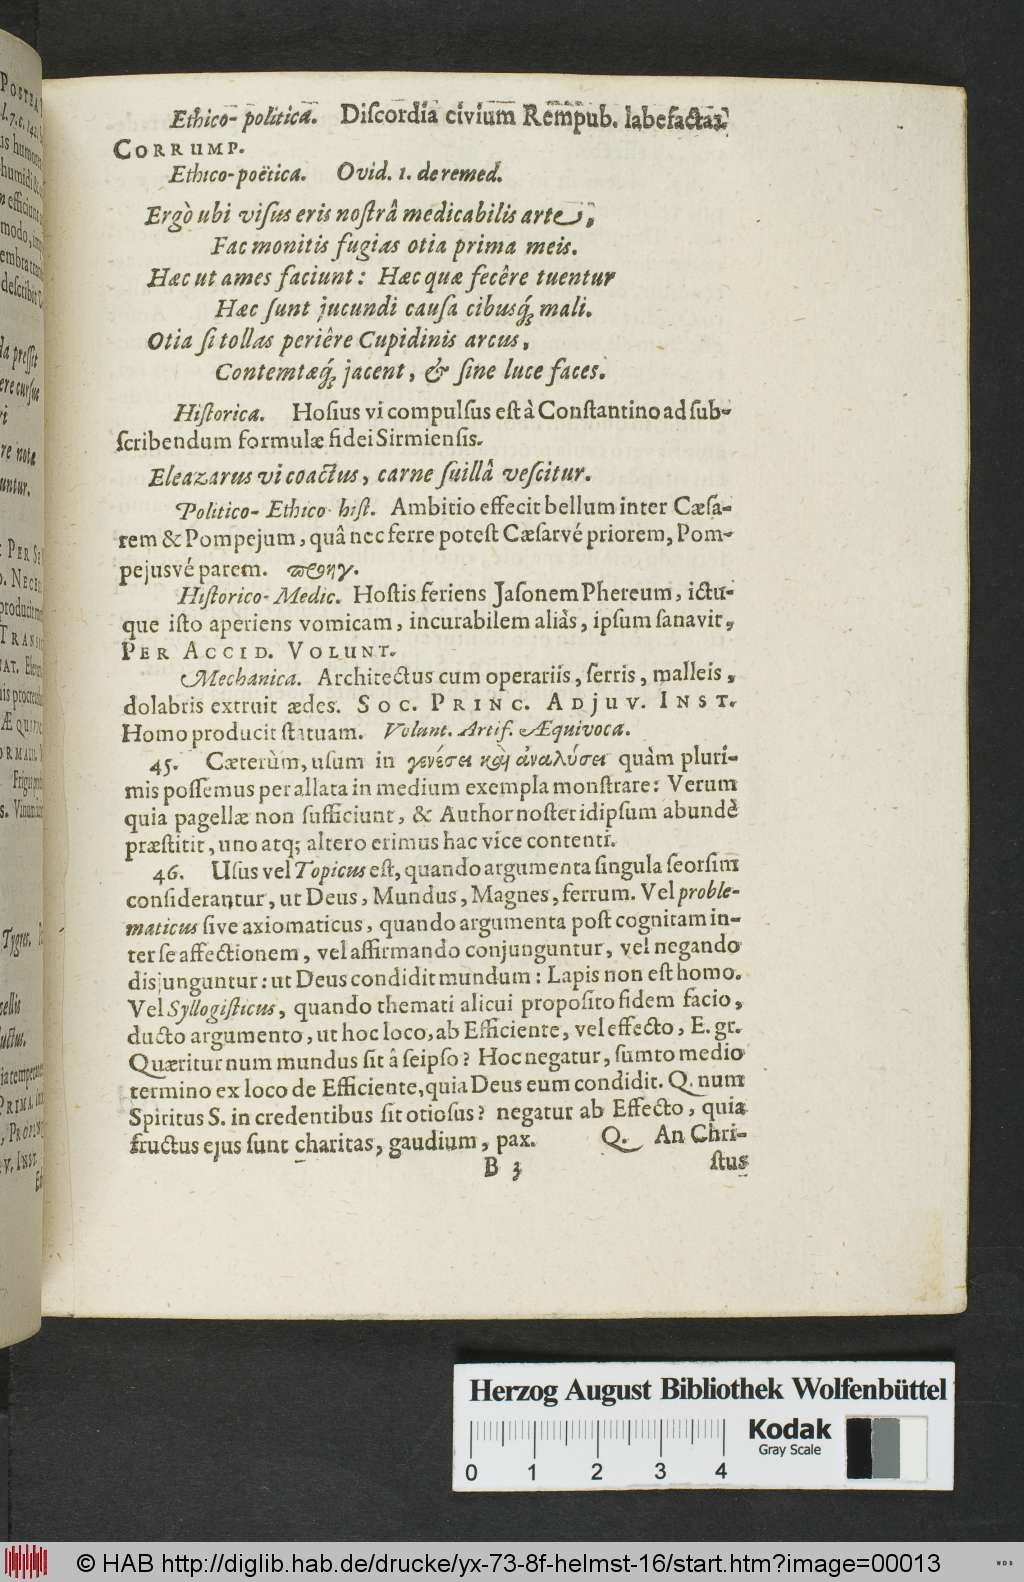 Ethico-politica. Discordia civium Rempub. labefactat.
CORRUMP.
Ethico-poëtica. Ovid. 1. de remed.
Ergò ubi visus eris nostrâ medicabilis arte,
Fac monitis fugias otia prima meis.
Hæc ut ames faciunt: Hæc quæ fecêre tuentur
Hæc sunt jucundi causa cibusq́; mali.
Otia si tollas periêre Cupidinis arcus,
Contemtæq́; jacent, & sine luce faces.
Historica. Hosius vi compulsus est à Constantino ad sub-
scribendum formulæ fidei Sirmiensis.
Eleazarus vi coactus, carne suillâ vescitur.
Politico-Ethico hist. Ambitio effecit bellum inter Cæsa-
rem & Pompejum, quâ nec ferre potest Cæsarvé priorem, Pom-
pejusvé parem. προηγ.
Historico-Medic. Hostis feriens Jasonem Phereum, ictu-
que isto aperiens vomicam, incurabilem aliàs, ipsum sanavit,
PER ACCID. VOLUNT.
Mechanica. Architectus cum operariis, serris, malleis,
dolabris extruit ædes. SOC. PRINC. ADJUV. INST.
Homo producit statuam. Volunt. Artif. Æquivoca.
45. Cæterùm, usum in γενέσει καὶ ἀναλύσει quàm pluri-
mis possemus per allata in medium exempla monstrare: Verum
quia pagellæ non sufficiunt, & Author noster idipsum abundè
præstitit, uno atq; altero erimus hac vice contenti.
46. Usus vel Topicus est, quando argumenta singula seorsim
considerantur, ut Deus, Mundus, Magnes, ferrum. Vel proble-
maticus sive axiomaticus, quando argumenta post cognitam in-
ter se affectionem, vel affirmando conjunguntur, vel negando
disjunguntur: ut Deus condidit mundum: Lapis non est homo.
Vel Syllogisticus, quando themati alicui proposito fidem facio,
ducto argumento, ut hoc loco, ab Efficiente, vel effecto, E. gr.
Quæritur num mundus sit â seipso? Hoc negatur, sumto medio
termino ex loco de Efficiente, quia Deus eum condidit. Q. num
Spiritus S. in credentibus sit otiosus? negatur ab Effecto, quia
fructus ejus sunt charitas, gaudium, pax. Q. An Chri-
B 3 stus
Herzog August Bibliothek Wolfenbüttel
0 1 2 3 4
Kodak
Gray Scale
© HAB http://diglib.hab.de/drucke/yx-73-8f-helmst-16/start.htm?image=00013